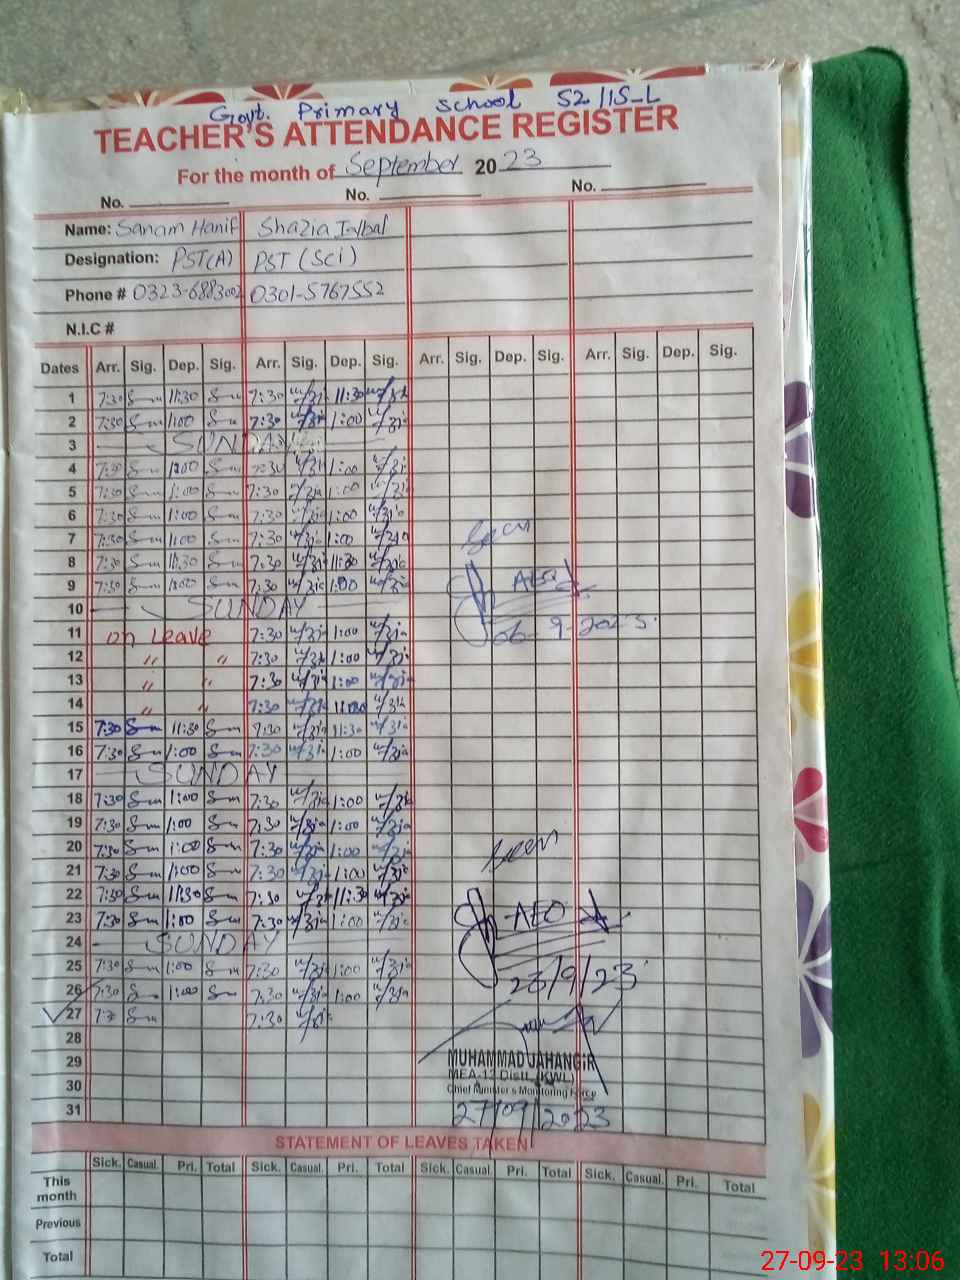 Govt. Primary School 52/15-L
TEACHER'S ATTENDANCE REGISTER
For the month of September 2023
No. No. No.
Name: Sanam Hanif Shazia Iqbal
Designation: PST(A) PST (Sci)
Phone # 0323-6883002 0301-5767552
N.I.C #
Dates Arr. Sig. Dep. Sig. Arr. Sig. Dep. Sig. Arr. Sig. Dep. Sig. Arr. Sig. Dep. Sig.
1 7:30 11:30 7:30 11:30
2 7:30 1:00 7:30 1:00
3 SUNDAY
4 7:30 1:00 7:30 1:00
5 7:30 1:00 7:30 1:00
6 7:30 1:00 7:30 1:00
Seen
7 7:30 1:00 7:30 1:00
8 7:30 11:30 7:30 11:30
9 7:30 1:00 7:30 1:00
AEO
10 SUNDAY
11 on Leave 7:30 1:00
06-9-2023
12 " " 7:30 1:00
13 " " 7:30 1:00
14 " " 7:30
15 7:30 11:30 7:30 11:30
16 7:30 1:00 7:30 1:00
17 SUNDAY
18 7:30 1:00 7:30 1:00
19 7:30 1:00 7:30 1:00
20 7:30 1:00 7:30 1:00
Seen
21 7:30 1:00 7:30 1:00
22 7:30 11:30 7:30 11:30
23 7:30 1:00 7:30 1:00
AEO
24 SUNDAY
25 7:30 1:00 7:30 1:00
23/9/23
26 7:30 1:00 7:30 1:00
27 7:30
28
29
MUHAMMAD JAHANGIR
MEA-13 Distt. (KWL)
30
Chief Minister's Monitoring Force
31
27/09/2023
STATEMENT OF LEAVES TAKEN
Sick. Casual. Pri. Total Sick. Casual. Pri. Total Sick. Casual. Pri. Total Sick. Casual. Pri. Total
This
month
Previous
Total
27-09-23 13:06